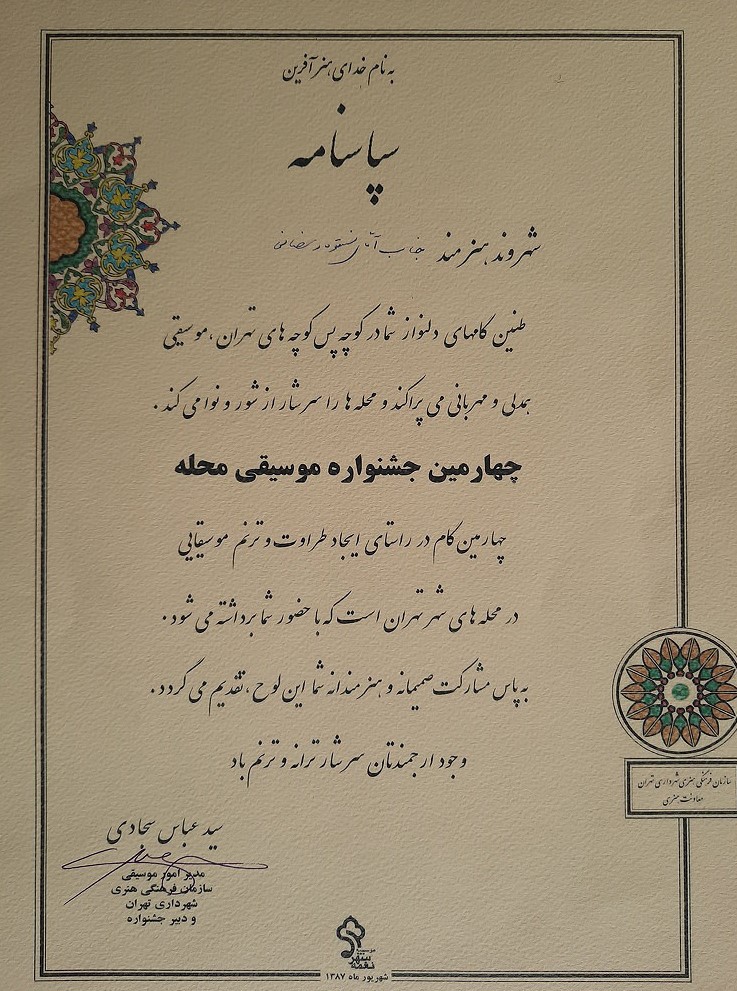 به نام خدای هنر آفرین
سپاسنامه
شهروند هنرمند جناب آقای رمضانی
طنین گامهای دلنواز شما در کوچه پس کوچه های تهران، موسیقی
همدلی و مهربانی می پراکند و محله ها را سرشار از شور و نوا می کند.
چهارمین جشنواره موسیقی محله
چهارمین گام در راستای ایجاد طراوت و ترنم موسیقایی
در محله های شهر تهران است که با حضور شما برداشته می شود.
به پاس مشارکت صمیمانه و هنرمندانه شما این لوح، تقدیم می گردد.
وجود ارجمندتان سرشار ترانه و ترنم باد
سازمان فرهنگی هنری شهرداری تهران
معاونت هنری
سید عباس سجادی
مدیر امور موسیقی
سازمان فرهنگی هنری
شهرداری تهران
و دبیر جشنواره
موسسه
نغمه شهر
شهریور ماه ۱۳۸۷